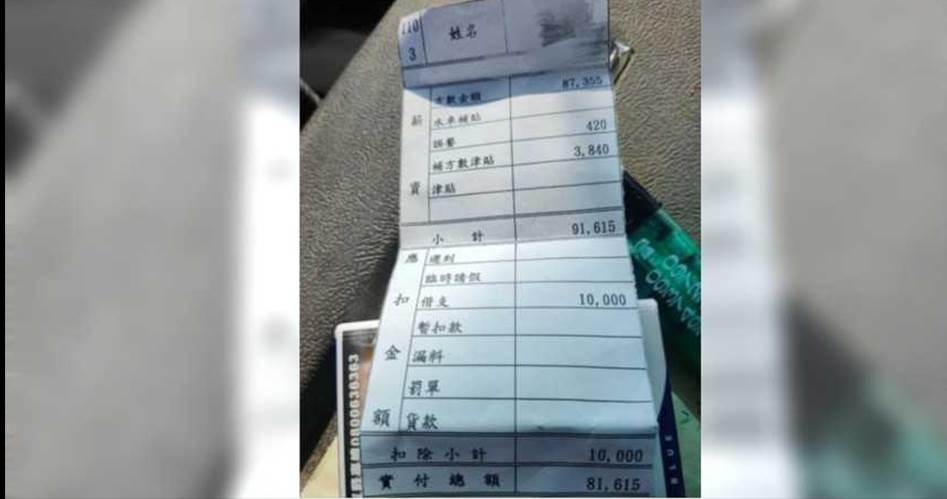 110 姓名
3
方數金額 87,355
薪 水車補貼
誤餐 420
補方數津貼 3,840
資 津貼
小計 91,615
應 遲到
臨時請假
扣 借支 10,000
暫扣款
金 漏料
罰單
額 貸款
扣除小計 10,000
實付總額 81,615
0800636363